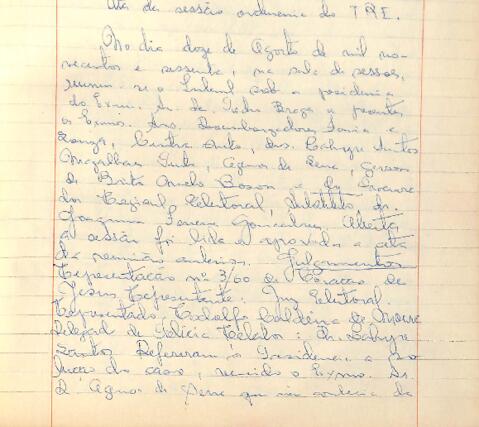 Ata da sessão ordinaria do TRE.
No dia doze de Agosto de mil no-
vecentos e sessenta, na sala de sessões,
reuniu-se o Tribunal sob a presidencia
do Exmo. Sr. Des. Pedro Braga e presentes
os Exmos. Srs. Desembargadores e
Souza, Costa, Drs. Santos
Magalhães Pinto, Agenor de Sena, Gerson
de Brito e o dr. Procura-
dor Regional Eleitoral, substituto dr.
Ferreira Gonçalves. Aberta
a sessão foi lida e aprovada a ata
da reunião anterior. Julgamentos
Representação nº 3/60 de Coração de
Jesus. Representante: Juiz Eleitoral.
Representado: Rodolfo Caldeira de
Delegado de Policia. Relator: Dr.
Santos. Deferiram a Presidencia a so-
lução do caso, vencido o Exmo. Sr.
Dr. Agenor de Sena que